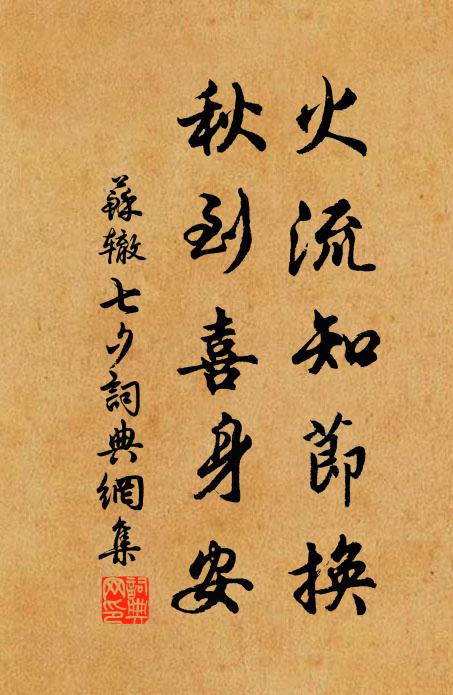 火流知節換
秋到喜身安
蘇轍七夕詞典網集
詞典
网印